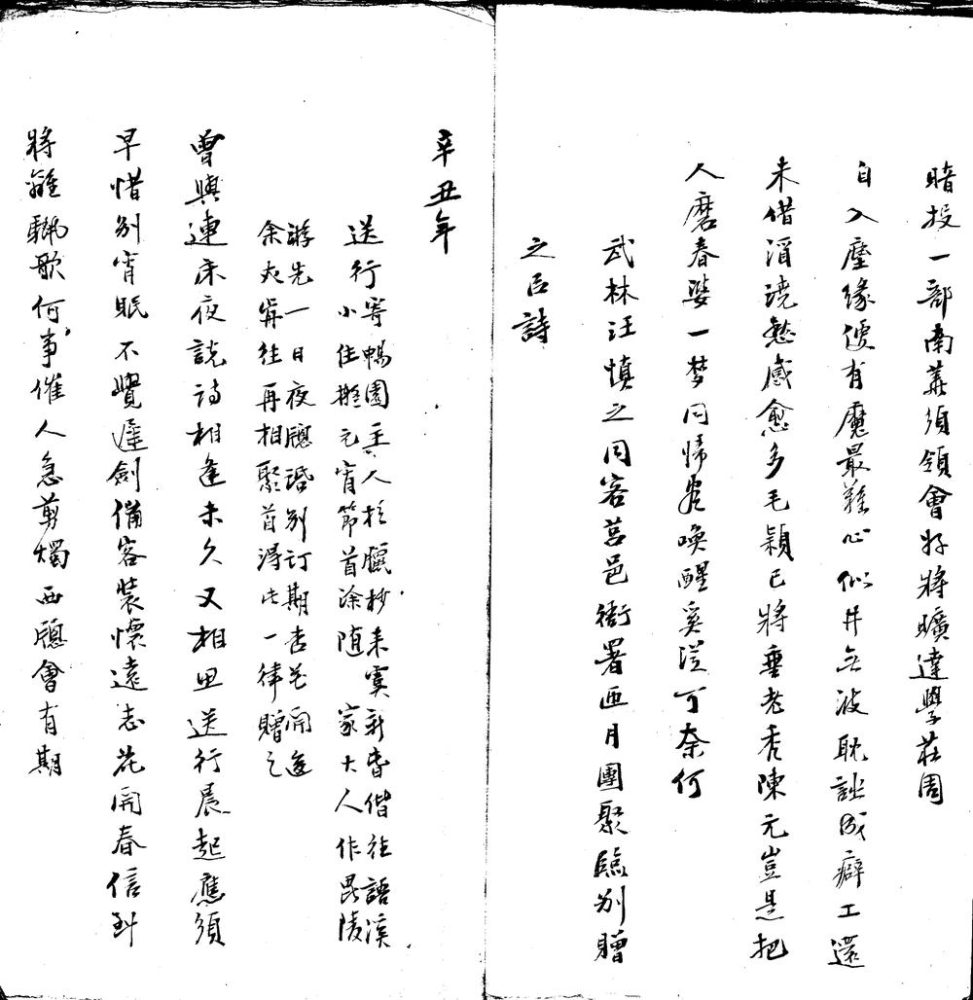 暗投一部南華須領會好將曠達學莊周
自入塵緣便有魔最難心似井無波耽詩成癖工還
未借酒澆愁感愈多毛穎已將垂老禿陳元豈是把
人磨春婆一梦同歸尽喚醒奚從可奈何
武林汪慎之同客莒邑衙署匝月團聚臨別贈
之以詩
辛丑年
送行寄暢園主人於臘抄來寞新昏偕往語溪
小住擬元宵節首涂随家大人作毘陵
游先一日夜牕話別訂期杏花開返
余夾寤往再相聚首得此一律贈之
曾與連床夜說詩相逢未久又相思送行晨起應須
早惜別宵眠不覺遲劍備客裝懷遠志花開春信到
將離驪歌何事催人急剪燭西牕會有期